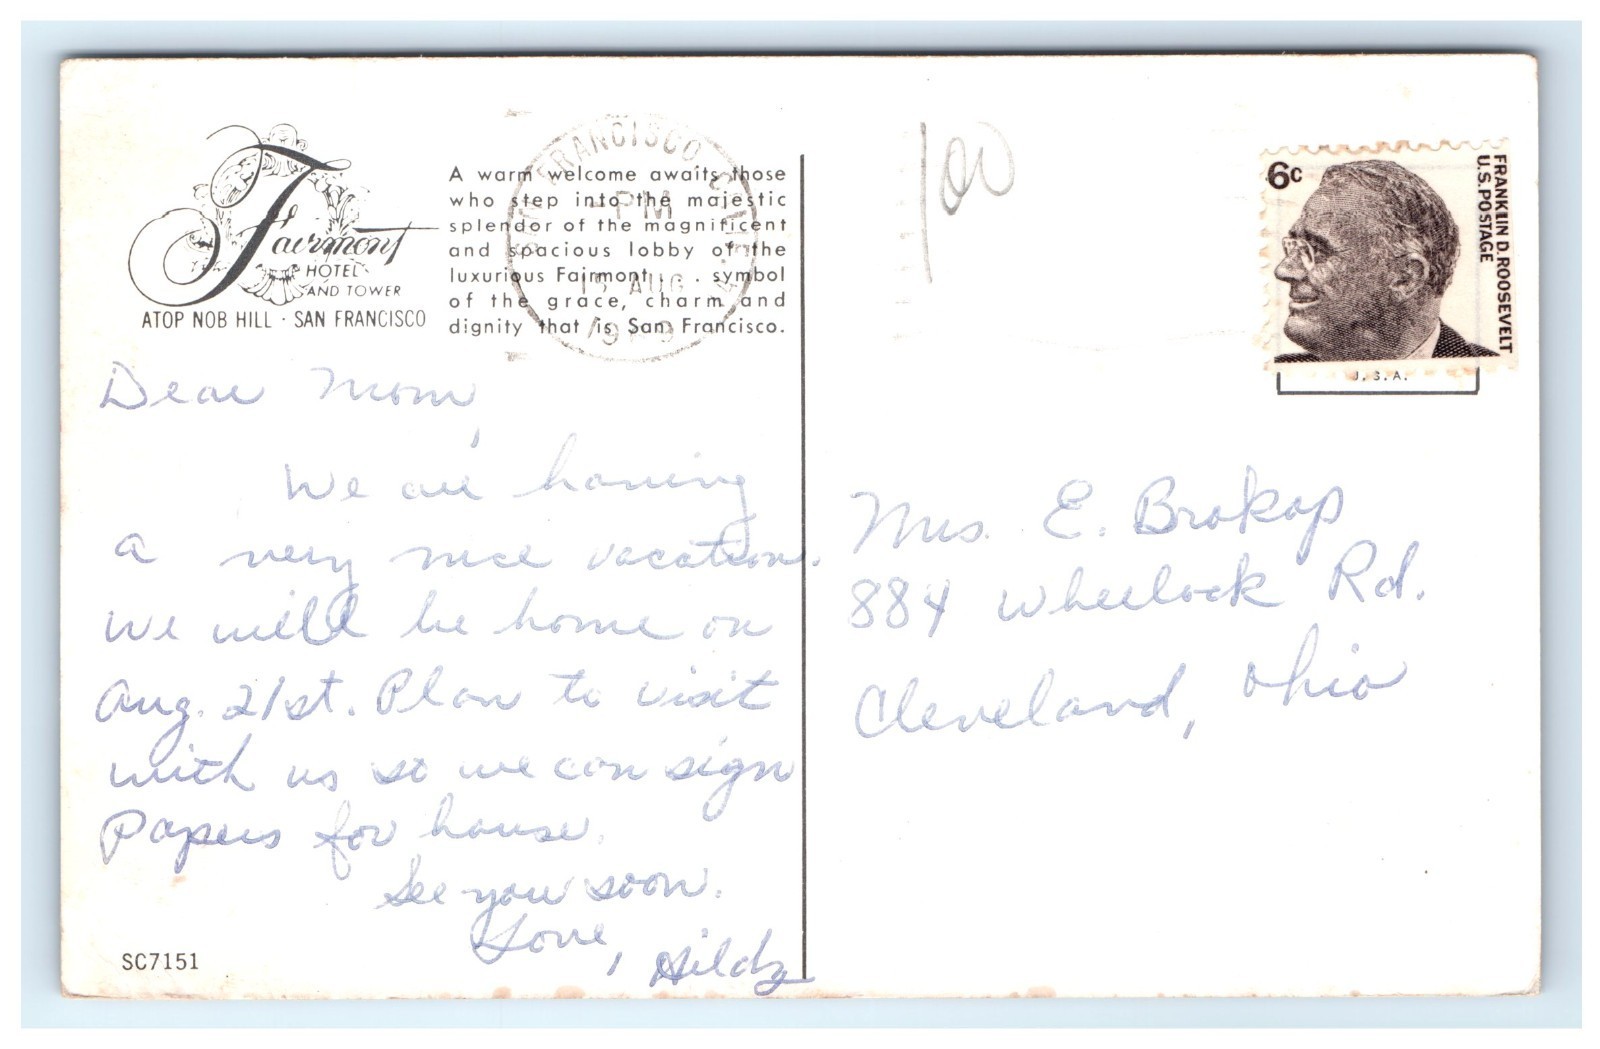 Fairmont
HOTEL
AND TOWER
ATOP NOB HILL · SAN FRANCISCO
A warm welcome awaits those
who step into the majestic
splendor of the magnificent
and spacious lobby of the
luxurious Fairmont . . . symbol
of the grace, charm and
dignity that is San Francisco.
SAN FRANCISCO CALIF
PM
15 AUG
Dear Mom,
We are having
a very nice vacation.
We will be home on
Aug. 21st. Plan to visit
with us so we can sign
Papers for house.
See you soon.
Love,
SC7151
100
6c
FRANKLIN D. ROOSEVELT
U.S. POSTAGE
U.S.A.
Mrs. E. Brokap
884 Wheelock Rd.
Cleveland, Ohio